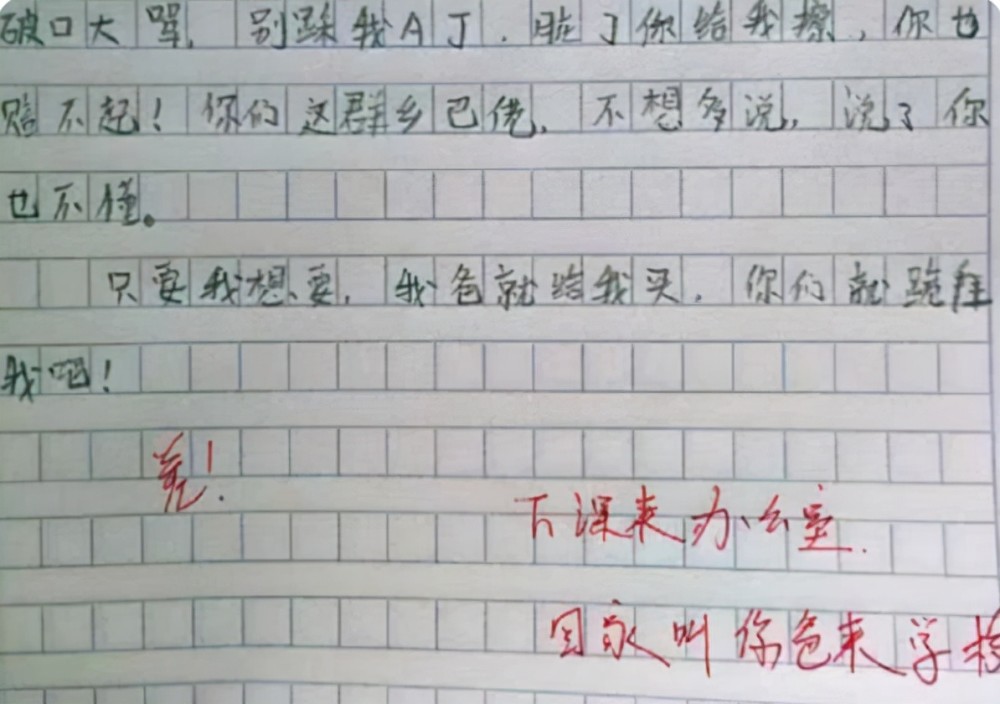 破口大骂，别踩我AJ，脏了你给我擦，你也
赔不起！你们这群乡巴佬，不想多说，说了你
也不懂。
只要我想要，我爸就给我买，你们就跪在
我吧！
下课来办公室.
回家叫你爸来学校